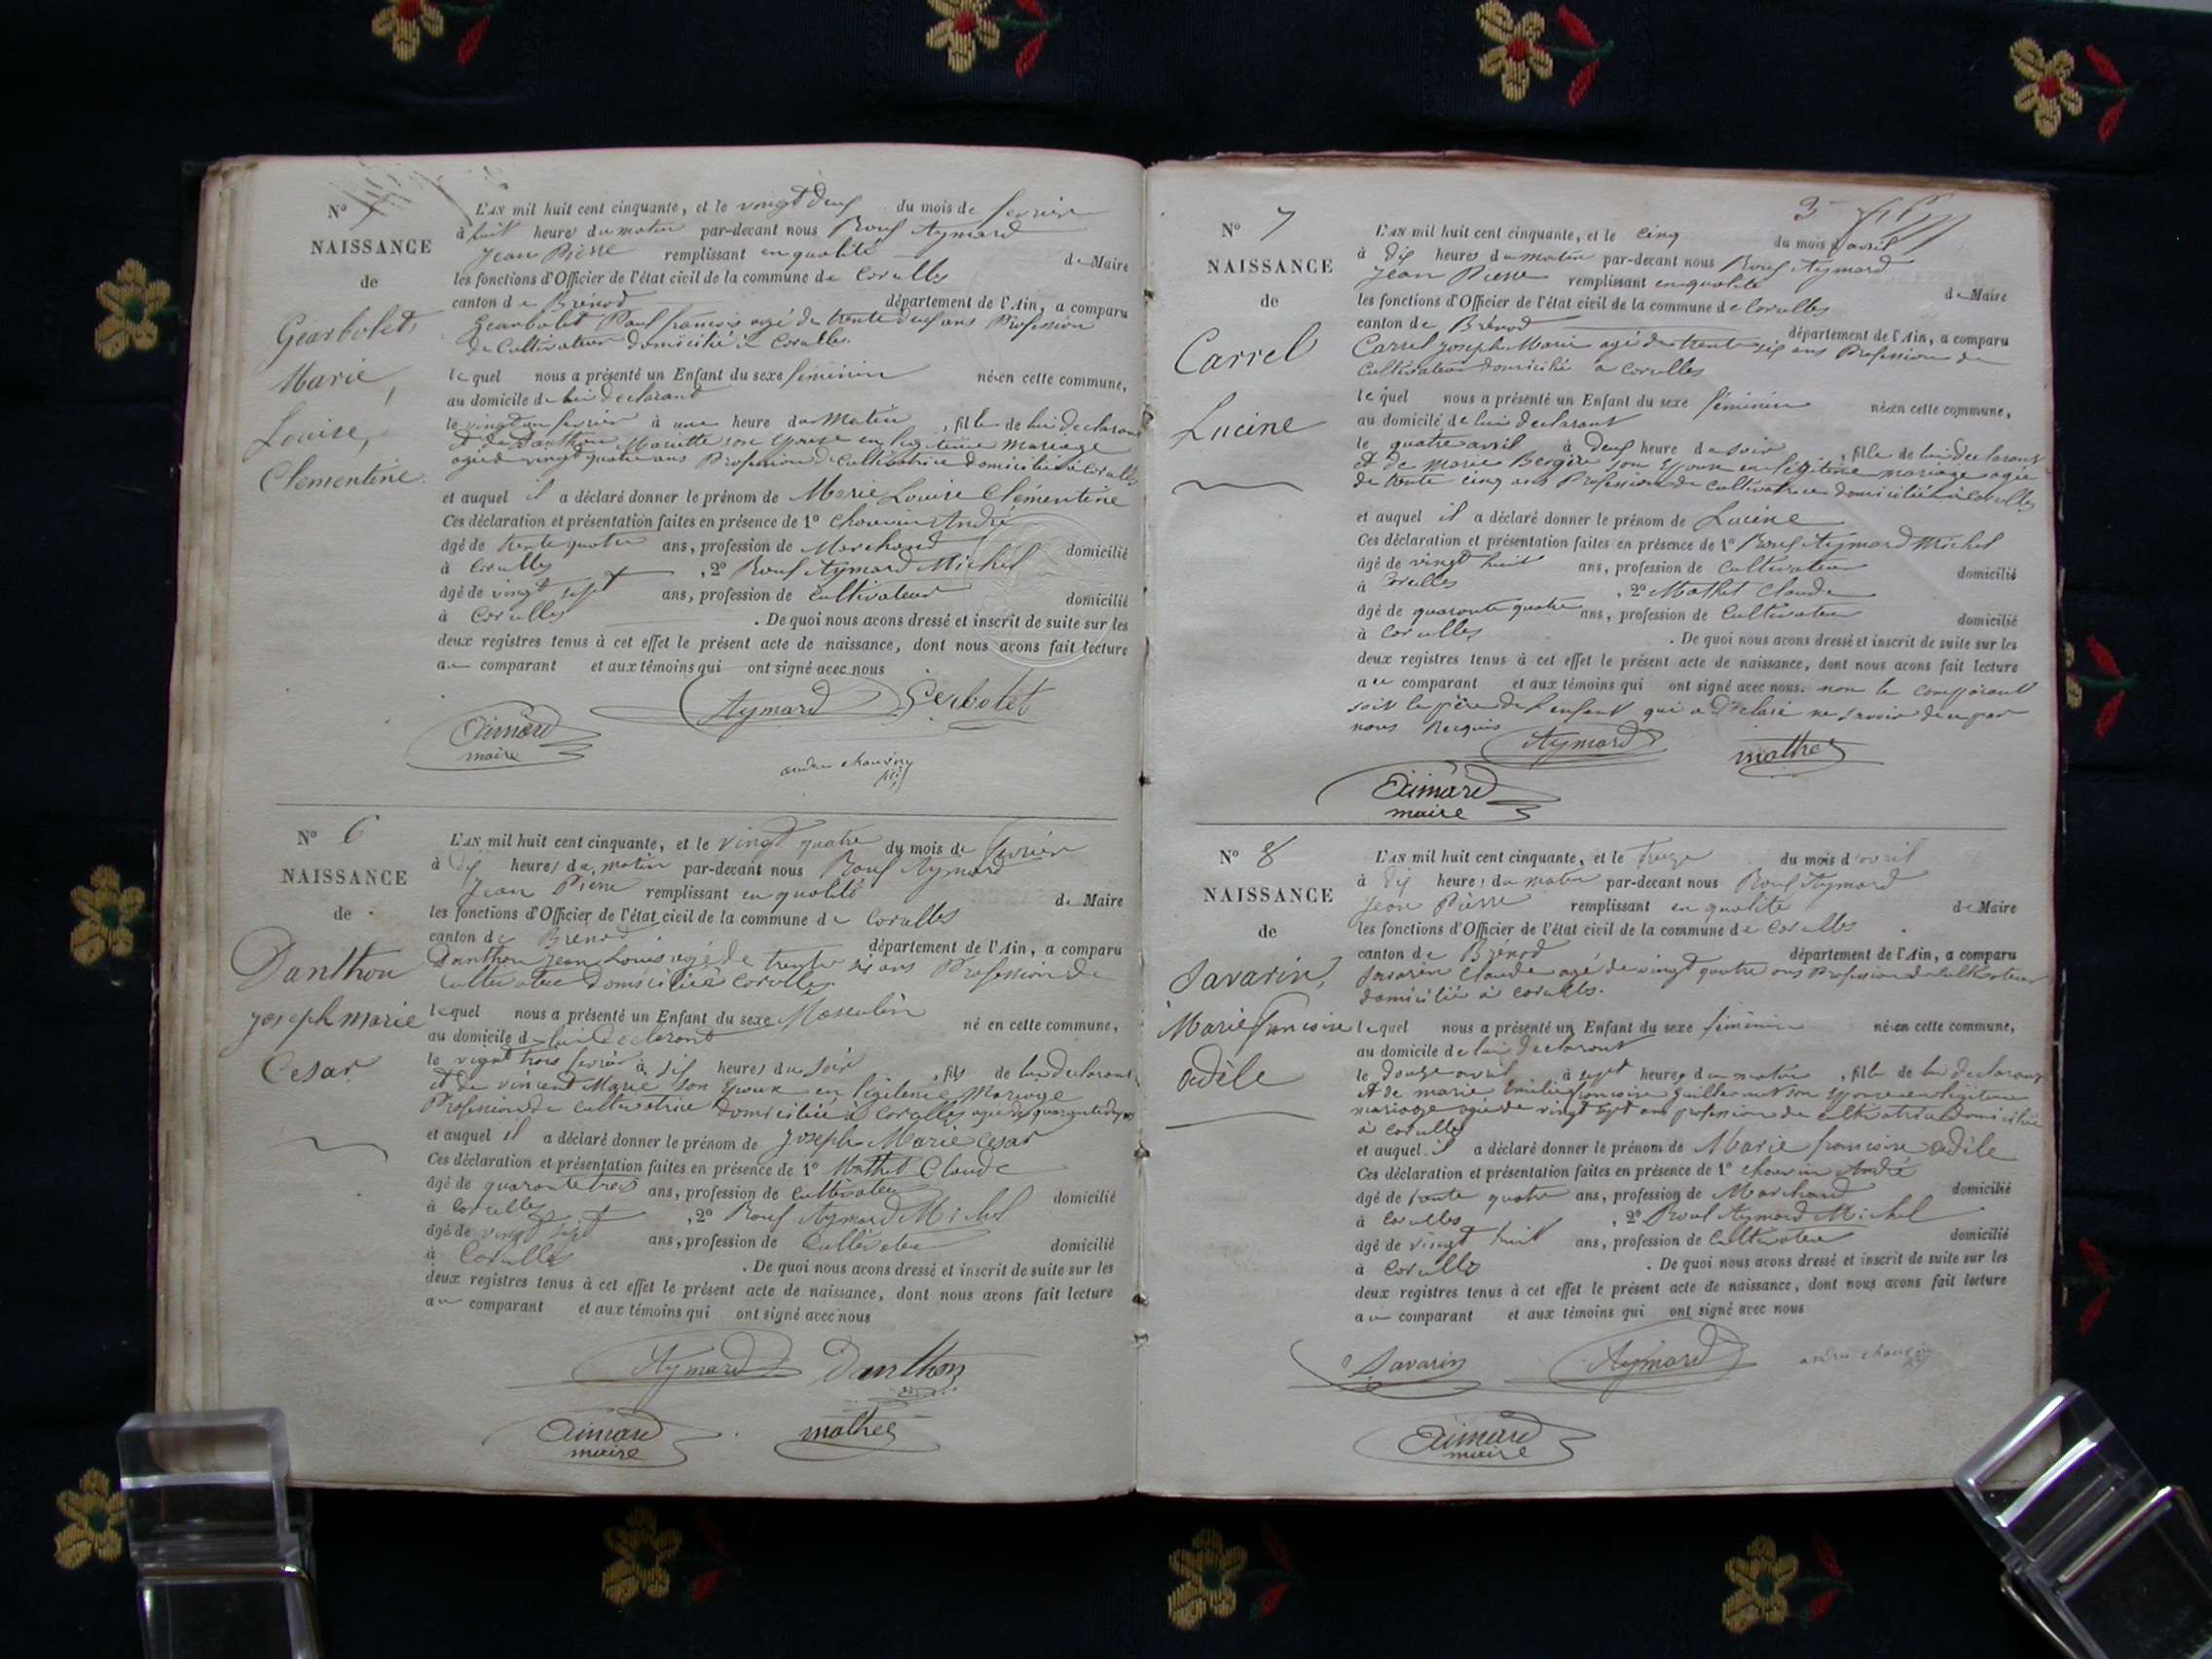 N°
NAISSANCE
de
Gearbolet
Marie
Louise,
Clementine
L'AN mil huit cent cinquante, et le vingt deux du mois de fevrier
à huit heures du matin par-devant nous Roux Aymard
Jean Pierre remplissant en qualité de Maire
les fonctions d'Officier de l'état civil de la commune de Corcelles
canton de Brénod département de l'Ain, a comparu
Gearbolet Paul françois agé de trente deux ans Profession
de Cultivateur domicilié à Corcelles.
lequel nous a présenté un Enfant du sexe féminin née en cette commune,
au domicile de lui declarant
le vingt un fevrier à une heure du Matin, fille de lui declarant
et de Danthon Mariette son epouse en légitime mariage
agée de vingt quatre ans Profession de Cultivatrice domiciliée à Corcelles
et auquel il a déclaré donner le prénom de Marie Louise Clémentine
Ces déclaration et présentation faites en présence de 1° Chouvin André
âgé de trente quatre ans, profession de Marchand domicilié
à Corcelles, 2° Roux Aymard Michel
âgé de vingt sept ans, profession de Cultivateur domicilié
à Corcelles. De quoi nous avons dressé et inscrit de suite sur les
deux registres tenus à cet effet le présent acte de naissance, dont nous avons fait lecture
au comparant et aux témoins qui ont signé avec nous
Aymard Gerbolet
Aimard
maire
andré chouvin
N° 6
NAISSANCE
de
Danthon
joseph marie
Cesar
L'AN mil huit cent cinquante, et le vingt quatre du mois de fevrier
à dix heures du matin par-devant nous Roux Aymard
Jean Pierre remplissant en qualité de Maire
les fonctions d'Officier de l'état civil de la commune de Corcelles
canton de Brénod département de l'Ain, a comparu
Danthon jean Louis agé de trente six ans Profession de
Cultivateur domicilié à Corcelles.
lequel nous a présenté un Enfant du sexe Masculin né en cette commune,
au domicile de lui declarant
le vingt trois fevrier à six heures du soir, fils de lui declarant
et de vincent Marie son epouse en légitime Mariage
Profession de Cultivatrice domiciliée à Corcelles agée de quarante
et auquel il a déclaré donner le prénom de joseph Marie Cesar
Ces déclaration et présentation faites en présence de 1° Mathet Claude
âgé de quarante trois ans, profession de Cultivateur domicilié
à Corcelles, 2° Roux Aymard Michel
âgé de vingt sept ans, profession de Cultivateur domicilié
à Corcelles. De quoi nous avons dressé et inscrit de suite sur les
deux registres tenus à cet effet le présent acte de naissance, dont nous avons fait lecture
au comparant et aux témoins qui ont signé avec nous
Aymard Danthon
Aimard
maire
mathet
3
N° 7
NAISSANCE
de
Carrel
Lucine
L'AN mil huit cent cinquante, et le cinq du mois d'avril
à dix heures du matin par-devant nous Roux Aymard
Jean Pierre remplissant en qualité de Maire
les fonctions d'Officier de l'état civil de la commune de Corcelles
canton de Brénod département de l'Ain, a comparu
Carrel joseph Marie agé de trente six ans Profession de
Cultivateur domicilié à Corcelles
lequel nous a présenté un Enfant du sexe féminin née en cette commune,
au domicile de lui declarant
le quatre avril à deux heure du soir, fille de lui declarant
et de Marie Bergère son epouse en légitime mariage agée
de trente cinq ans Profession de Cultivatrice domiciliée à Corcelles
et auquel il a déclaré donner le prénom de Lucine
Ces déclaration et présentation faites en présence de 1° Roux Aymard Michel
âgé de vingt huit ans, profession de Cultivateur domicilié
à Corcelles, 2° Mathet Claude
âgé de quarante quatre ans, profession de Cultivateur domicilié
à Corcelles. De quoi nous avons dressé et inscrit de suite sur les
deux registres tenus à cet effet le présent acte de naissance, dont nous avons fait lecture
au comparant et aux témoins qui ont signé avec nous. non le comparant
soit le père de l'enfant qui a déclaré ne savoir de ce par
nous Requis
Aymard mathet
Aimard
maire
N° 8
NAISSANCE
de
Savarin,
Marie françoise
adèle
L'AN mil huit cent cinquante, et le treize du mois d'avril
à dix heures du matin par-devant nous Roux Aymard
Jean Pierre remplissant en qualité de Maire
les fonctions d'Officier de l'état civil de la commune de Corcelles
canton de Brénod département de l'Ain, a comparu
Savarin Claude agé de vingt quatre ans Profession de Cultivateur
domicilié à Corcelles.
lequel nous a présenté un Enfant du sexe féminin née en cette commune,
au domicile de lui declarant
le douze avril à sept heures du matin, fille de lui declarant
et de marie Emilie françoise Guillermet son epouse en légitime
mariage agée de vingt sept ans profession de cultivatrice domiciliée
à Corcelles
et auquel il a déclaré donner le prénom de Marie françoise adèle
Ces déclaration et présentation faites en présence de 1° Chouvin André
âgé de trente quatre ans, profession de Marchand domicilié
à Corcelles, 2° Roux Aymard Michel
âgé de vingt huit ans, profession de Cultivateur domicilié
à Corcelles. De quoi nous avons dressé et inscrit de suite sur les
deux registres tenus à cet effet le présent acte de naissance, dont nous avons fait lecture
au comparant et aux témoins qui ont signé avec nous
Savarin Aymard andré chouvin
Aimard
maire